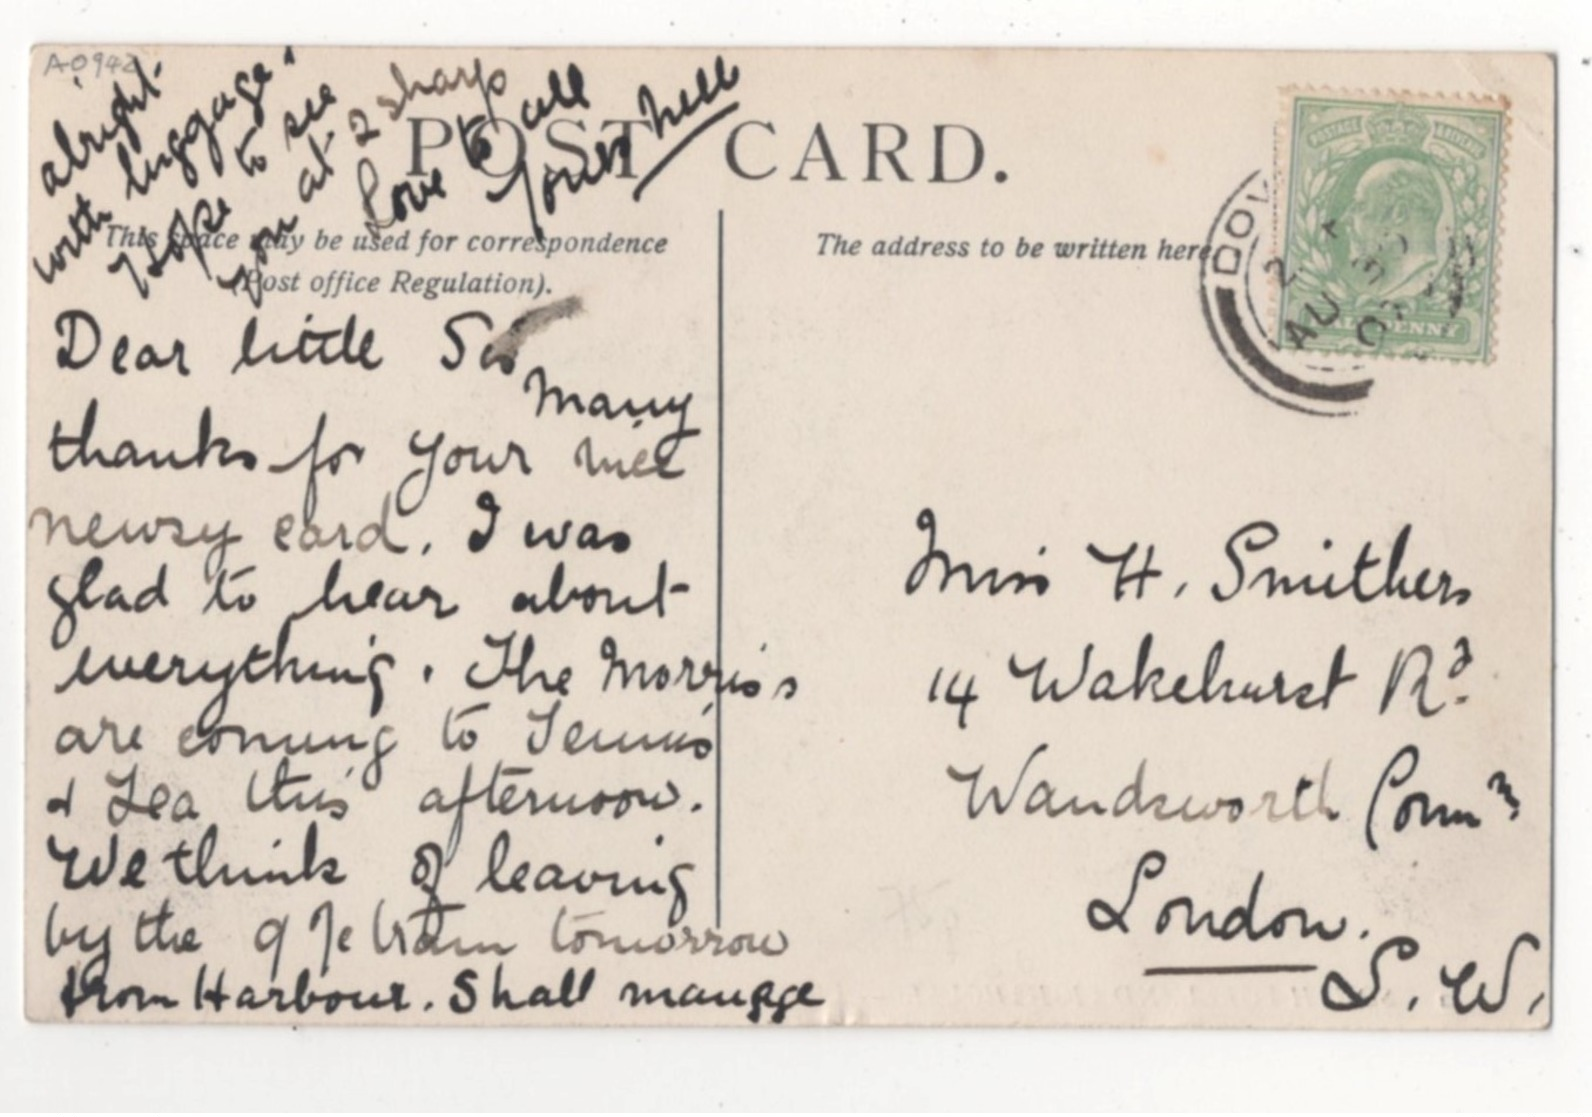 A0942
POST CARD.
This space may be used for correspondence
(Post office Regulation).
The address to be written here.
Dear little Sis
Many
thanks for your nice
newsy card. I was
glad to hear about
everything. The Morris's
are coming to Tennis
& Tea this afternoon.
We think of leaving
by the 9 train tomorrow
from Harbour. Shall manage
alright
with luggage.
Hope to see
you at 2 sharp
Love to all
Yours Nell
Miss H. Smithers
14 Wakehurst Rd.
Wandsworth Comm
London.
S.W.
DOV
AU 3
HALFPENNY